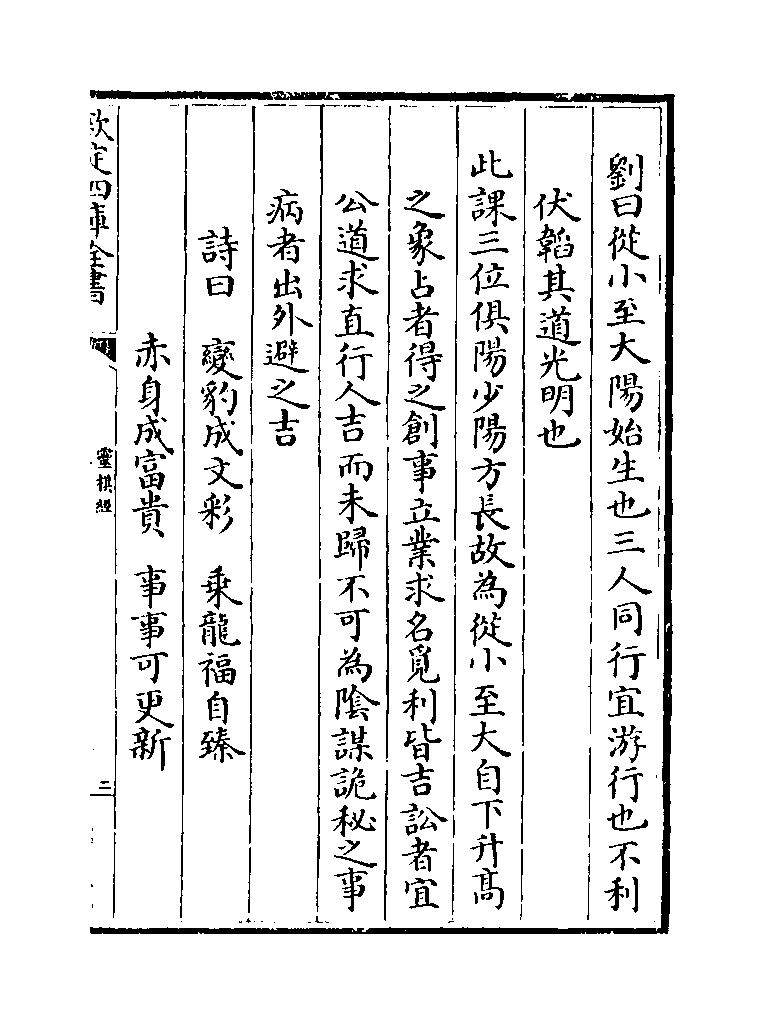 劉曰從小至大陽始生也三人同行宜游行也不利
伏韜其道光明也
此課三位俱陽少陽方長故為從小至大自下升髙
之象占者得之創事立業求名覓利皆吉訟者宜
公道求直行人吉而未歸不可為陰謀詭秘之事
病者出外避之吉
詩曰　變豹成文彩　乗龍福自臻
赤身成富貴　事事可更新
欽定四庫全書
靈棋經
三